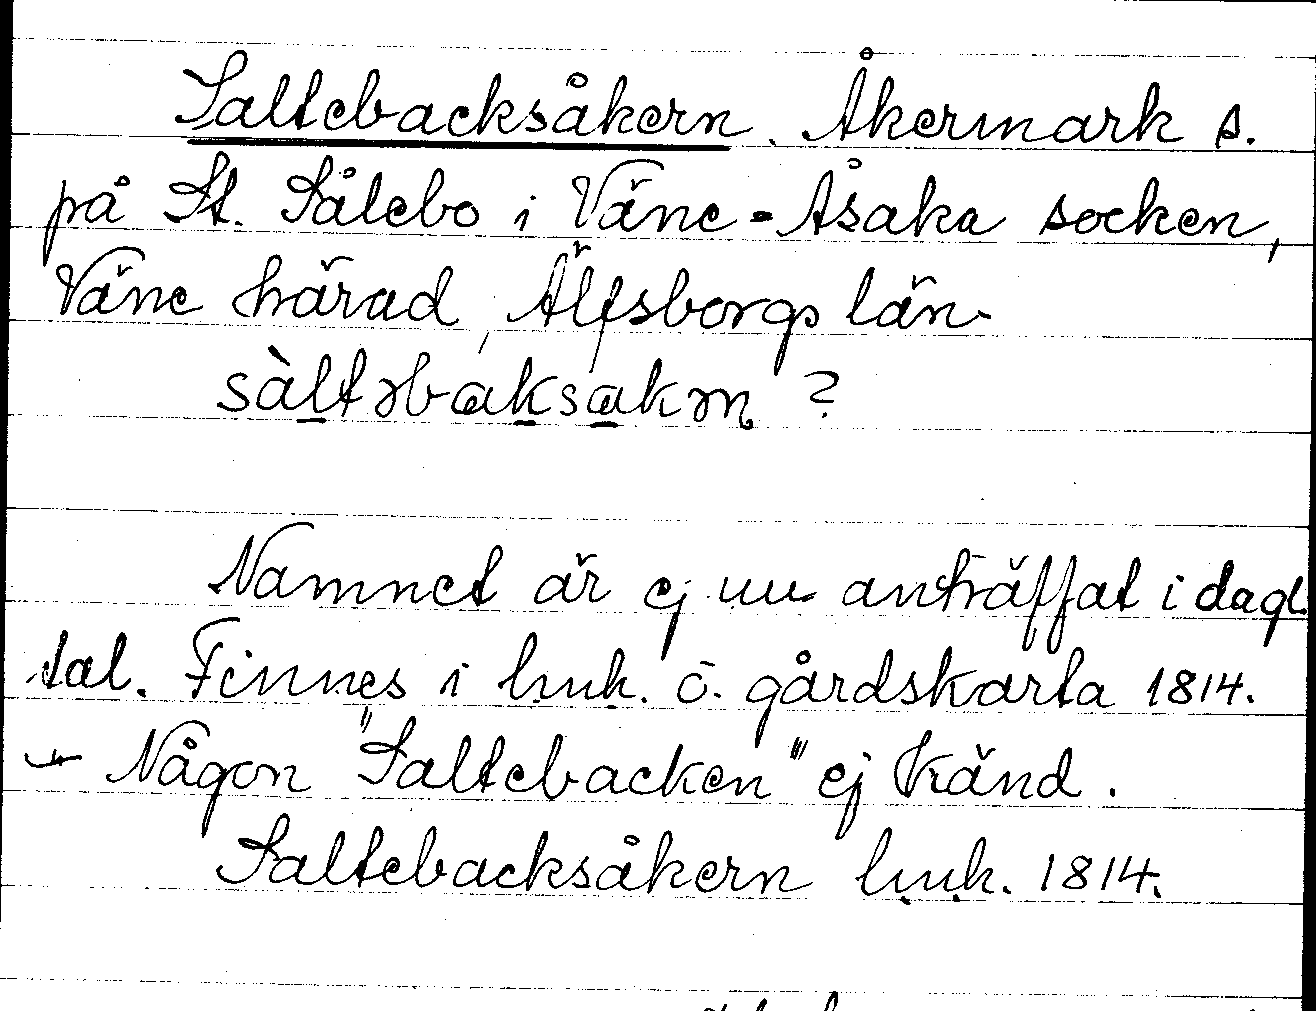 Saltebacksåkern. Åkermark s.
på St. Sålebo i Väne-Åsaka socken,
Väne härad, Älfsborgs län.
sàltəbaksakəɳ ?
Namnet är ej nu anträffat i dagl.
tal. Finnes i lmk. ö. gårdskarta 1814.
– Någon "Saltebacken" ej känd.
Saltebacksåkern lmk. 1814.